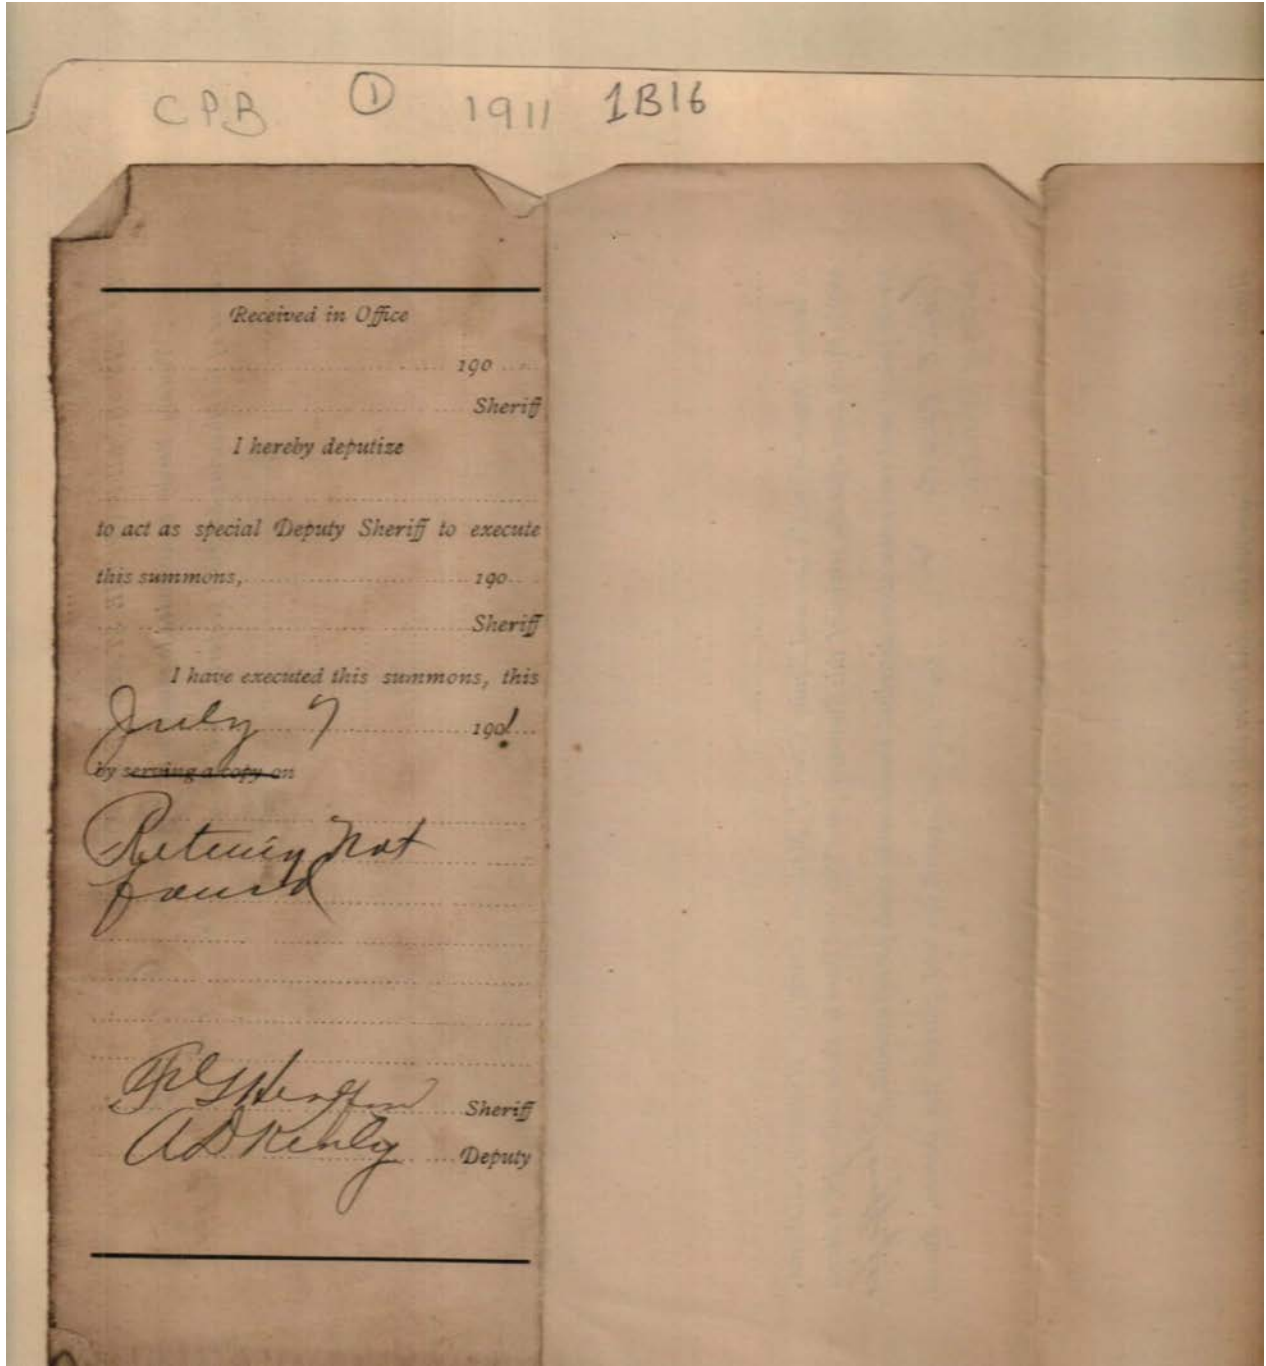 CPB ① 1911 1B16
Received in Office
190
Sheriff
I hereby deputize
to act as special Deputy Sheriff to execute
this summons, 190
Sheriff
I have executed this summons, this
July 7 1901
by serving a copy on
Not
found
Sheriff
A D Kenly Deputy